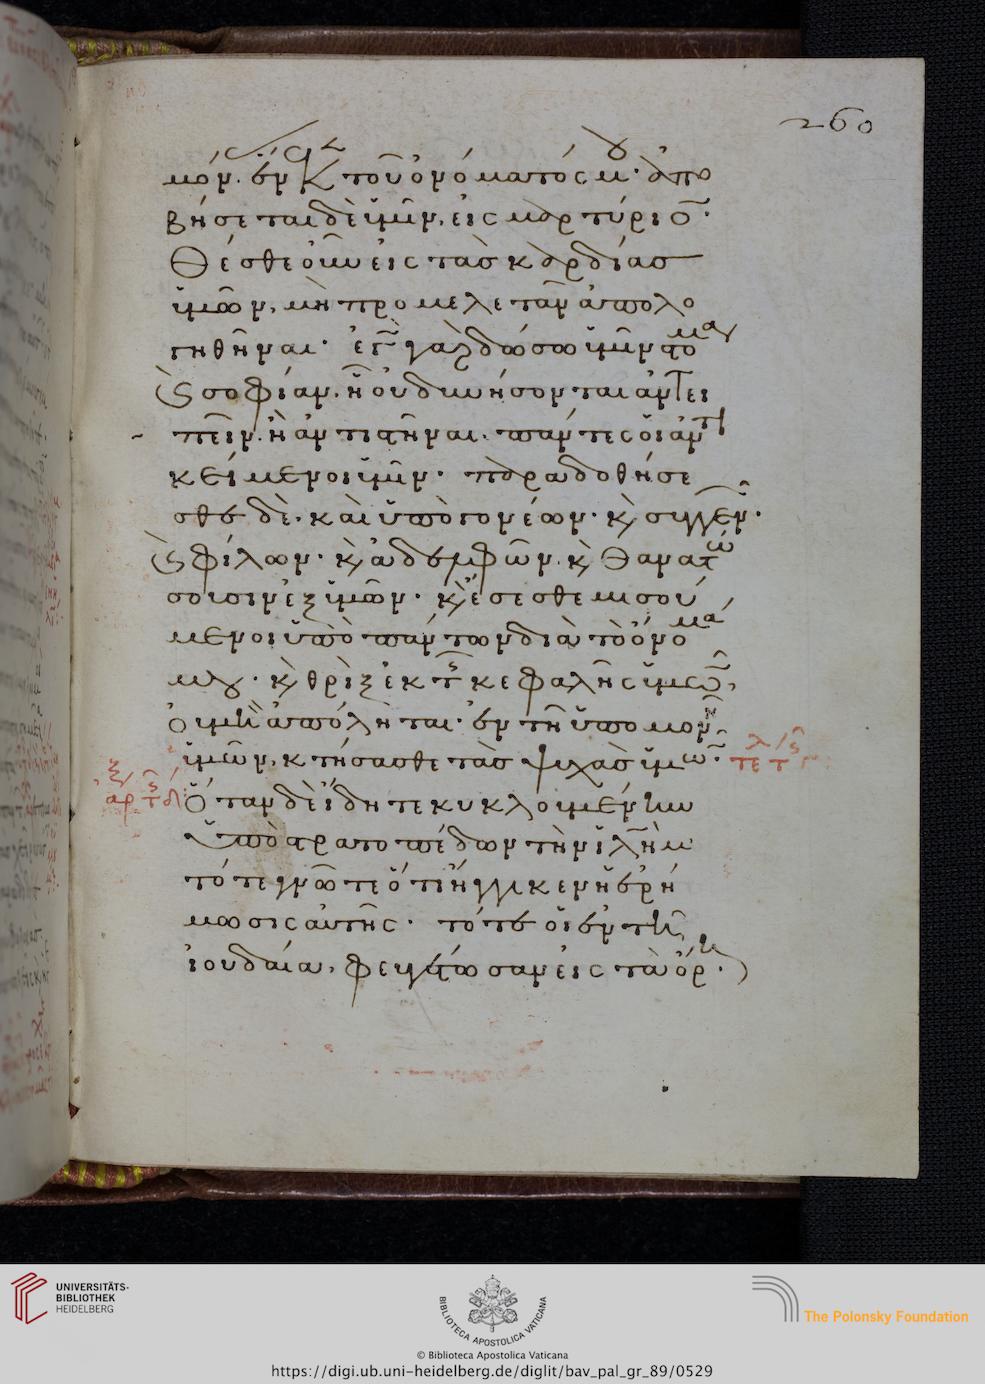 260
μόν. ἕνεκεν τοῦ ὀνόματός μου· ἀπο
βήσεται δὲ ὑμῖν, εἰς μαρτύριον·
Θέσθε οὖν εἰς τὰς καρδίας
ὑμῶν, μὴ προμελετᾶν ἀπολο
γηθῆναι· ἐγὼ γὰρ δώσω ὑμῖν στόμα
καὶ σοφίαν, ᾗ οὐ δυνήσονται ἀντει
πεῖν. ἢ ἀντιστῆναι. πάντες οἱ ἀντι
κείμενοι ὑμῖν· παραδοθήσε
σθε δὲ. καὶ ὑπὸ γονέων· καὶ συγγενῶν·
καὶ φίλων· καὶ ἀδελφῶν. καὶ θανατώ
σουσιν ἐξ ὑμῶν· καὶ ἔσεσθε μισού
μενοι ὑπὸ πάντων διὰ τὸ ὄνομά
μου· καὶ θρὶξ ἐκ τῆς κεφαλῆς ὑμῶν,
οὐ μὴ ἀπόληται· ἐν τῇ ὑπομονῇ
ὑμῶν, κτήσασθε τὰς ψυχὰς ὑμῶν·
Ὅταν δὲ ἴδητε κυκλουμένην
ὑπὸ στρατοπέδων τὴν ἰλὴμ
τότε γνῶτε ὅτι ἤγγικεν ἡ ἐρή
μωσις αὐτῆς· τότε οἱ ἐν τῇ
ἰουδαία, φευγέτωσαν εἰς τὰ ὄρη·
UNIVERSITÄTS-
BIBLIOTHEK
HEIDELBERG
BIBLIOTECA APOSTOLICA VATICANA
The Polonsky Foundation
© Biblioteca Apostolica Vaticana
https://digi.ub.uni-heidelberg.de/diglit/bav_pal_gr_89/0529